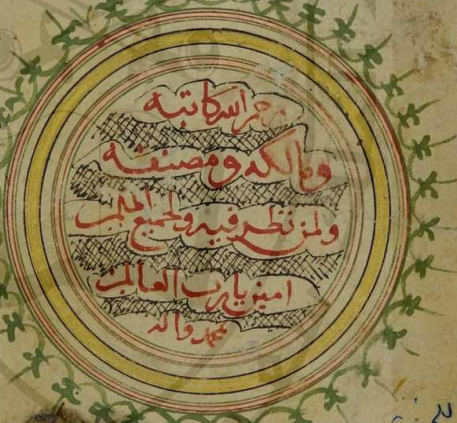 رحم الله كاتبه
ومالكه ومصنفه
ولمن نظر فيه ولجميع المسلمين
امين يا رب العالمين
محمد واله